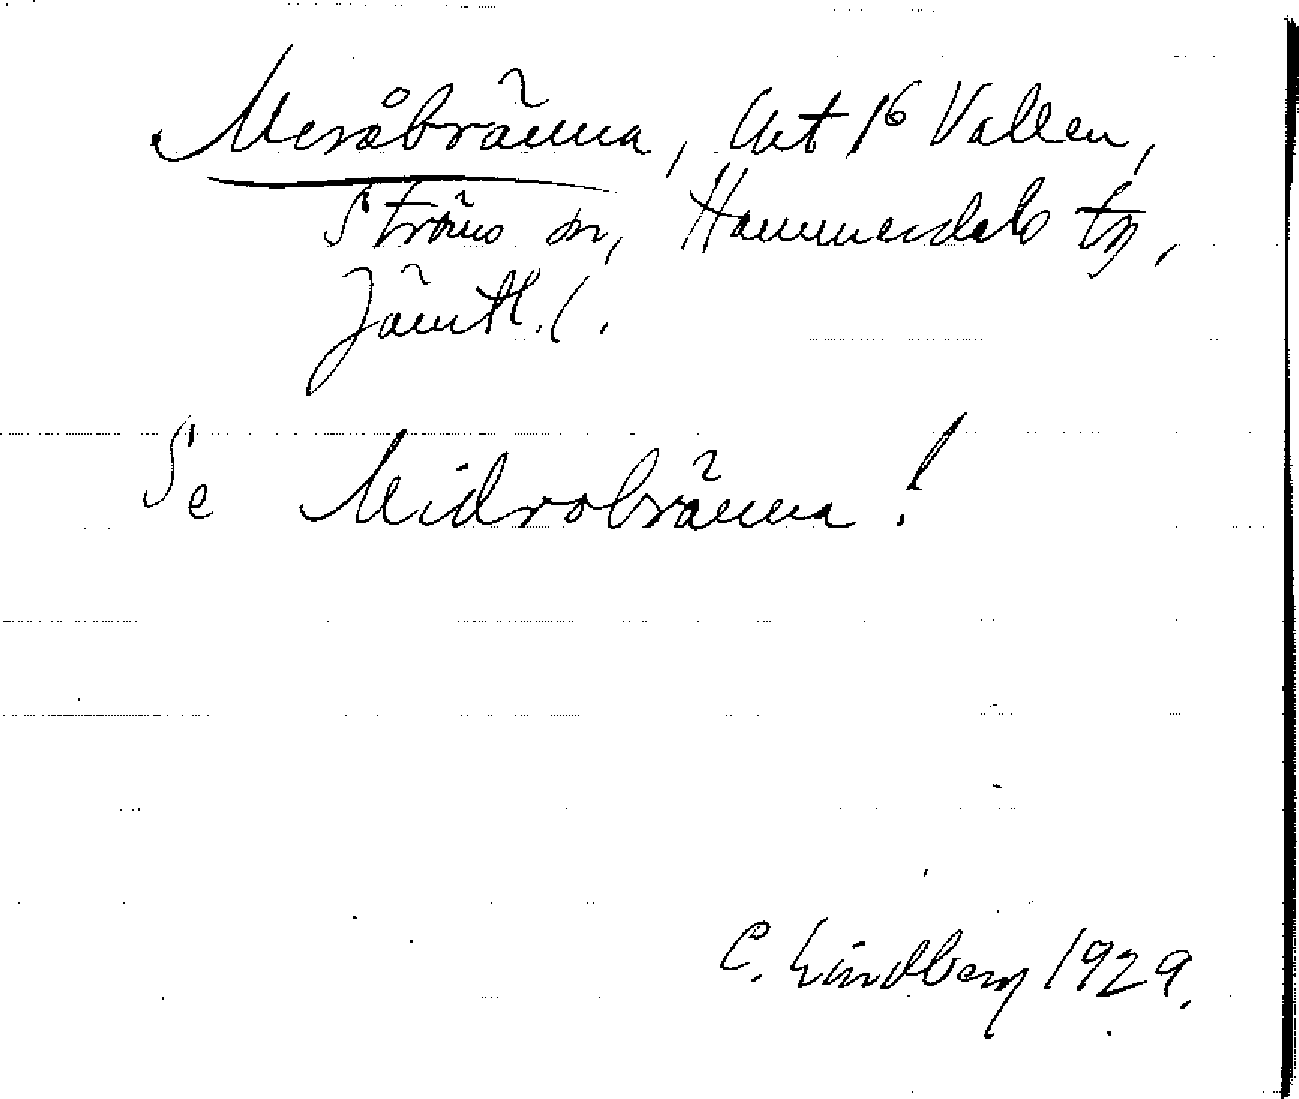 Meråbränna, Ant 16 Vallen,
Ströms sn, Hammerdals tg,
Jämtl. l.
Se Midrobränna!
C. Lindberg 1929.